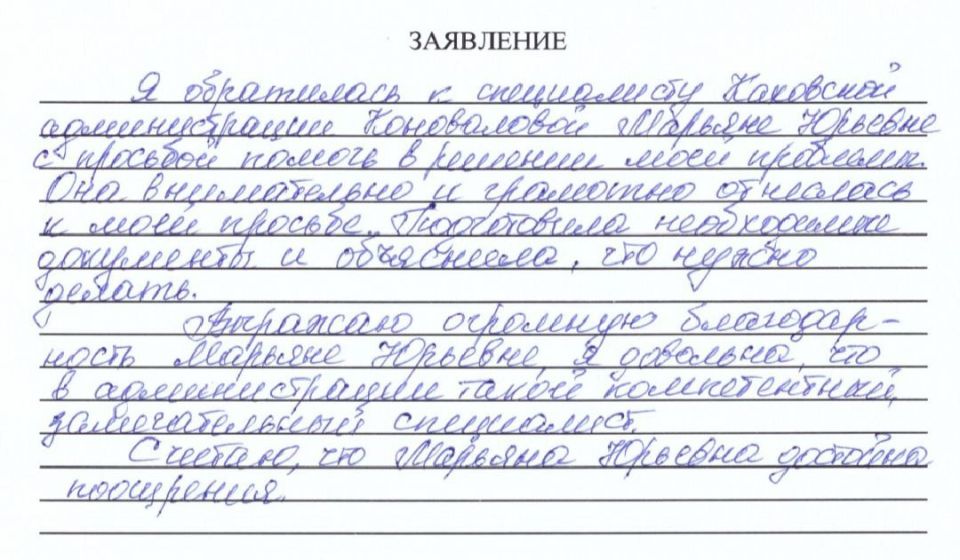 ЗАЯВЛЕНИЕ
Я обратилась к специалисту Каховской
администрации Коноваловой Марьяне Юрьевне
с просьбой помочь в решении моей проблемы.
Она внимательно и грамотно отнеслась
к моей просьбе. Подготовила необходимые
документы и объяснила, что нужно
делать.
Выражаю огромную благодар-
ность Марьяне Юрьевне, я довольна, что
в администрации такой компетентный,
замечательный специалист.
Считаю, что Марьяна Юрьевна достойна
поощрения.